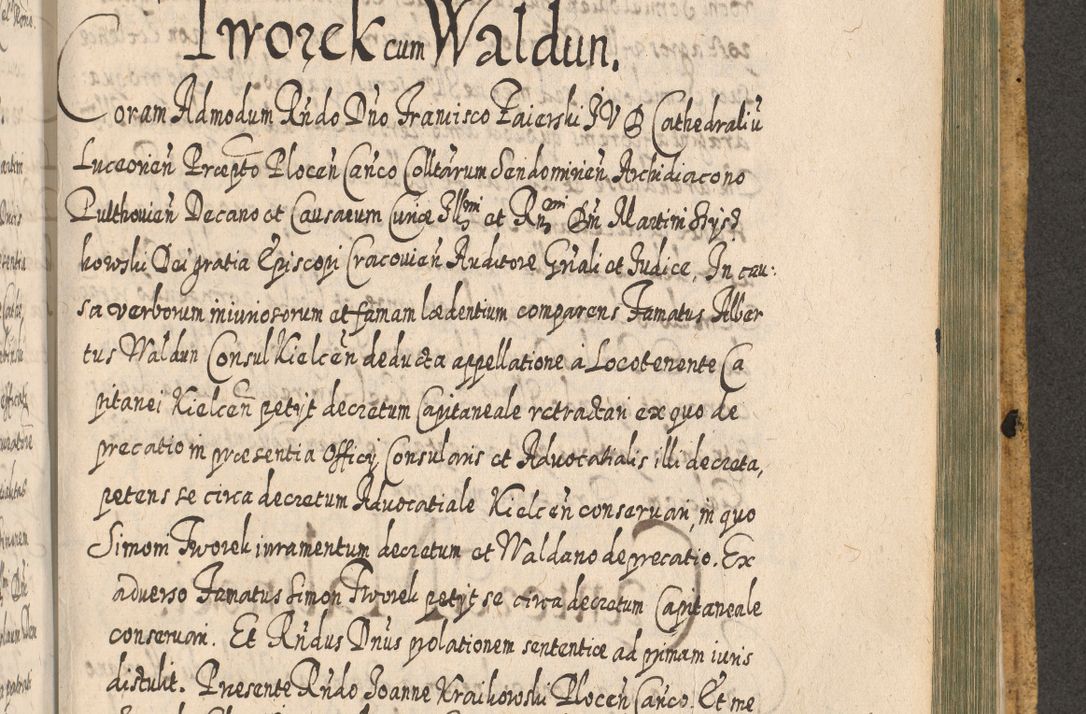 Tworek cum Waldun.
Coram Admodum Rñdo Dño Francisco Zaierski JVD Cathedraliũ
Luceorieñ Præpto Ploceñ Cañco Colltarum Sendomirieñ Archidiacono
Pulthovieñ Decano et Causarum Curiæ Illmi et Rmi Dñi Martini Szysz
kowski Dei gratia Episcopi Cracovieñ Auditore Gñali et Judice, In cau:
sa verborum iniuriosorum et famam lædentium comparens Famatus Alber
tus Waldun Consul Kielceñ deducta appellatione à Locotenente Ca
pitanei Kielceñ petijt decretum Capitaneale retractari ex quo de
precatio in præsentia Officij Consularis et Advocatialis illi decreta,
petens se circa decretum Advocatiale Kielceñ conservari, in quo
Simoni Tworek iuramentum decretum et Waldano deprecatio. Ex
adverso Famatus Simon Tworek petijt se circa decretum Capitaneale
conservari. Et Rñdus Dñus prolationem sententiæ ad primam iuris
distulit. Presente Rñdo Joanne Kraikowski Ploceñ Cañco. Et me